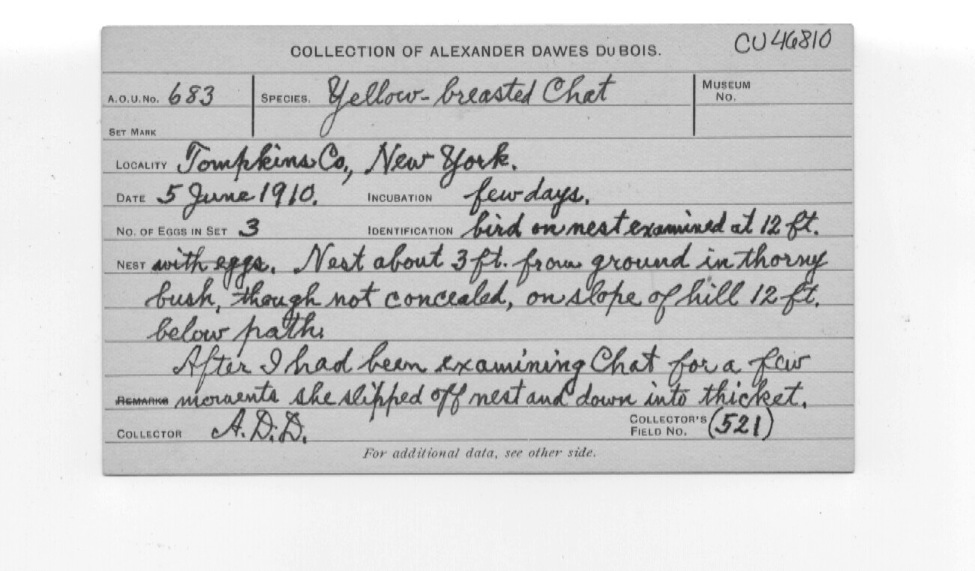 COLLECTION OF ALEXANDER DAWES DUBOIS. CU46810
A.O.U. No. 683 SPECIES. Yellow-breasted Chat MUSEUM No.
SET MARK
LOCALITY Tompkins Co., New York.
DATE 5 June 1910. INCUBATION few days.
NO. OF EGGS IN SET 3 IDENTIFICATION bird on nest examined at 12 ft.
NEST with eggs. Nest about 3 ft. from ground in thorny
bush, though not concealed, on slope of hill 12 ft.
below path.
After I had been examining Chat for a few
REMARKS moments she slipped off nest and down into thicket.
COLLECTOR A.D.D. COLLECTOR'S FIELD No. (521)
For additional data, see other side.